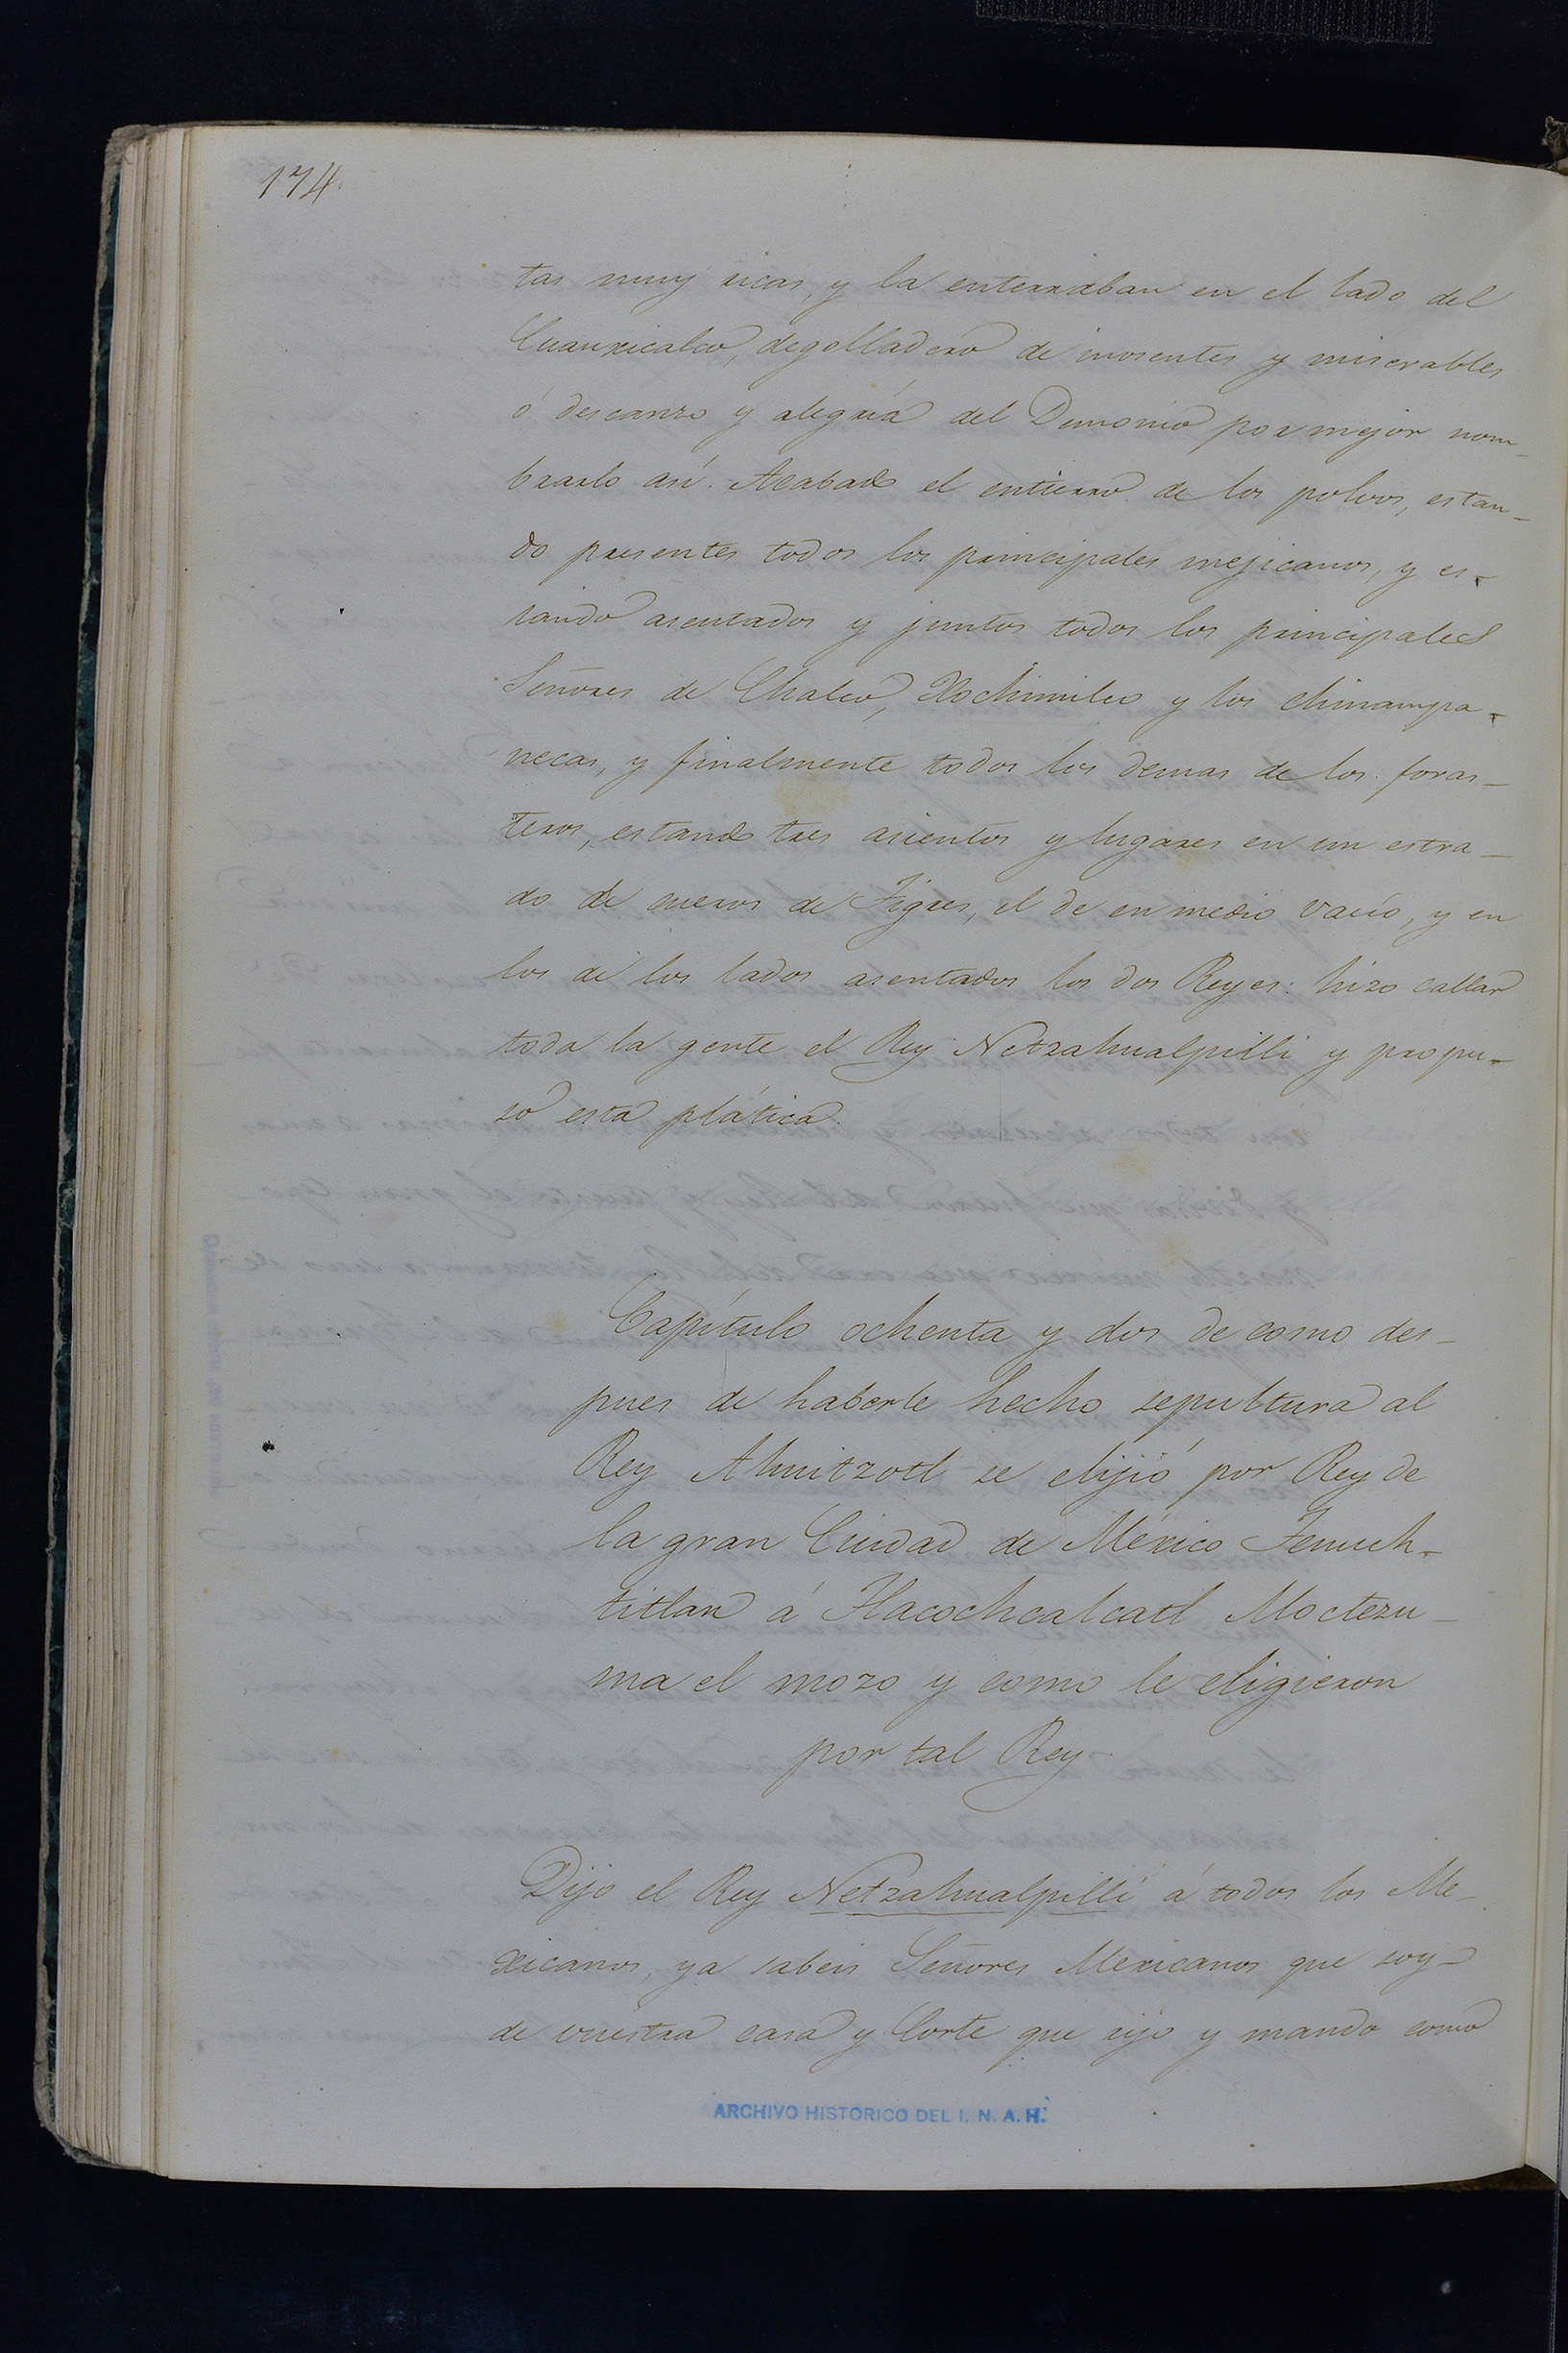 174.
tas muy ricas, y la enterraban en el lado del
Cuauxicalco, degolladero de inosentes y miserables
ó descanso y alegría del Demonio por mejor nom_
brarlo así. Acabado el entierro de los polvos, estan_
do presentes todos los principales mejicanos, y es_
tando asentados y juntos todos los principales
Señores de Chalco, Xochimilco y los chinampa_
necas, y finalmente todos los demas de los foras_
teros, estando tres asientos y lugares en un estra_
do de cueros de Tigres, el de en medio vacío, y en
los de los lados asentados los dos Reyes: hizo callar
toda la gente el Rey Netzahualpilli y propu_
so esta plática.
Capítulo ochenta y dos de como des_
pues de haberle hecho sepultura al
Rey Ahuitzotl se elijió por Rey de
la gran Ciudad de México Tenuch_
titlan á Tlacochcalcatl Moctezu_
ma el mozo y como le eligieron
por tal Rey.
Dijo el Rey Netzahualpilli á todos los Me_
xicanos, ya sabeis Señores Mexicanos que soy
de vuestra casa y Corte que rijo y mando como
ARCHIVO HISTORICO DEL I. N. A. H.